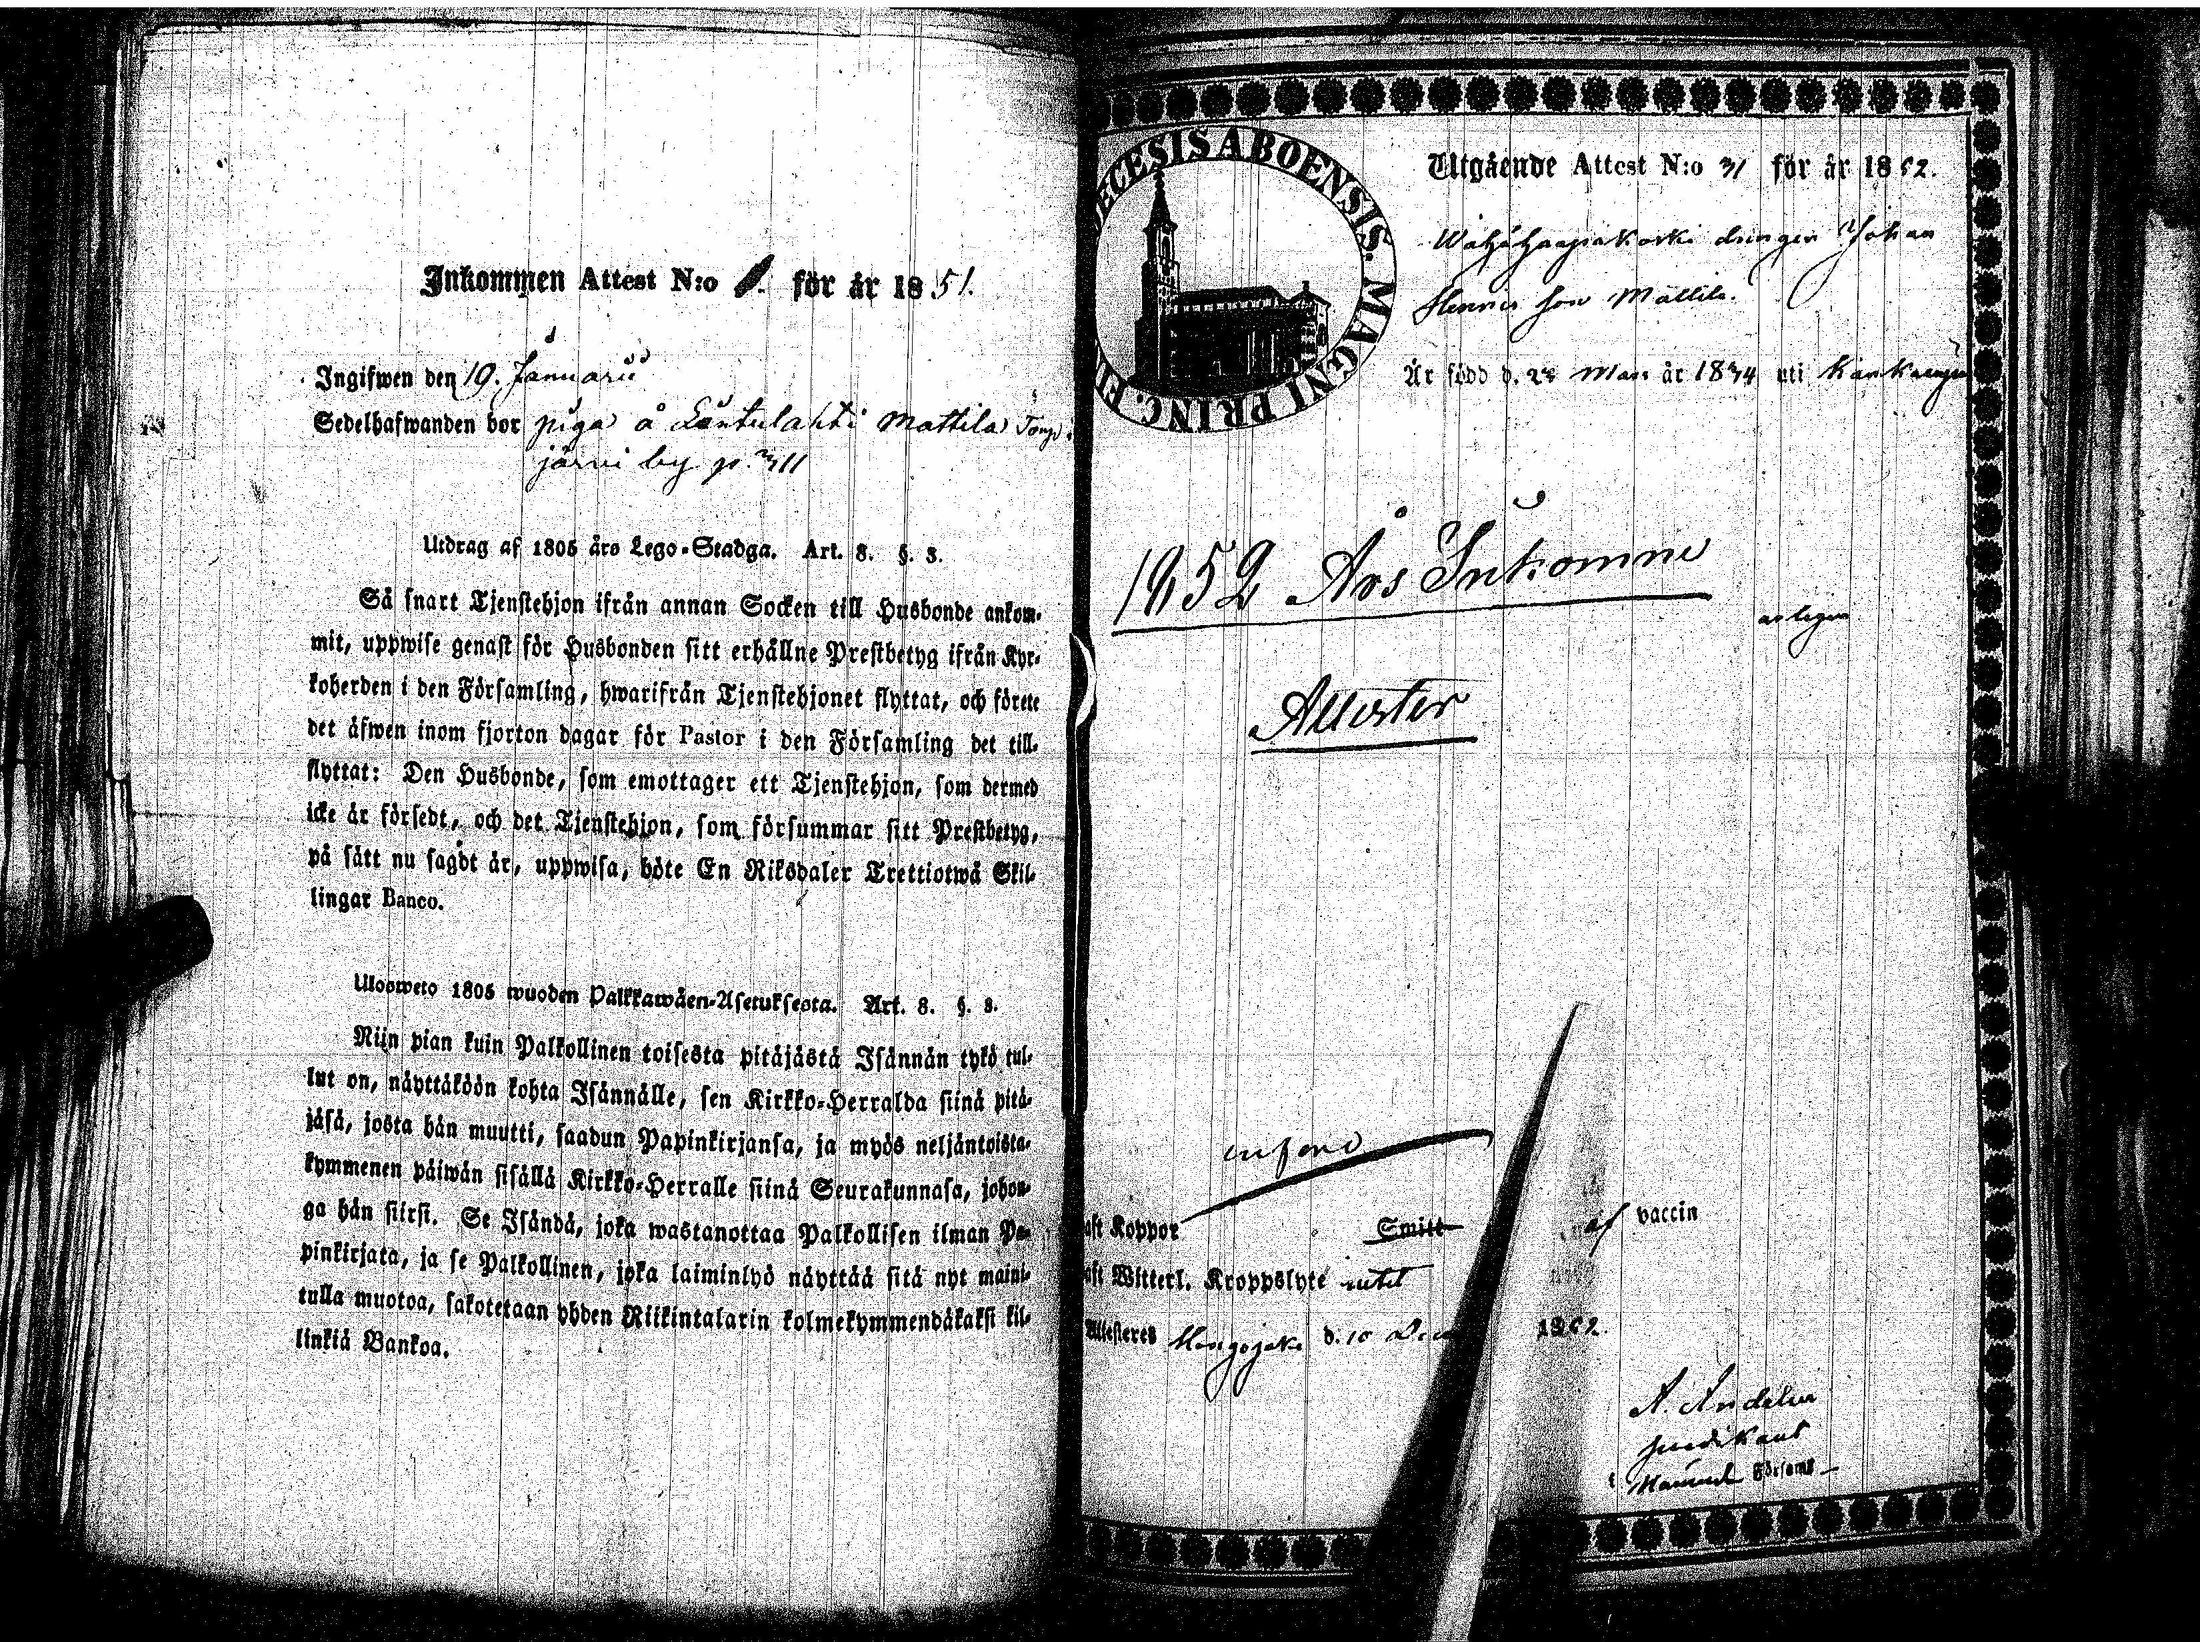 Inkommen Attest N:o för år 1851.
Ingifwen den 19. Januarii
Sedelhafwanden bor piga å Läntulahti Mattila
järvi by p. 311
Utdrag af 1805 års Lego-Stadga. Art. 8. §. 3.
Så snart Tjenstehjon ifrån annan Socken till Husbonde ankom-
mit, uppwise genast för Husbonden sitt erhållne Prestbetyg ifrån Kyr-
koherden i den Församling, hwarifrån Tjenstehjonet flyttat, och förete
det äfwen inom fjorton dagar för Pastor i den Församling det till-
flyttat: Den Husbonde, som emottager ett Tjenstehjon, som dermed
icke är försedt, och det Tjenstehjon, som försummar sitt Prestbetyg,
på sätt nu sagdt är, uppwisa, böte En Riksdaler Trettiotwå Skil-
lingar Banco.
Ulosweto 1805 wuoden Palkkawäen-Asetuksesta. Art. 8. §. 3.
Niin pian kuin Palkollinen toisesta pitäjästä Isännän tykö tul-
lut on, näyttäköön kohta Isännälle, sen Kirkko-Herralda siinä pitä-
jäsä, josta hän muutti, saadun Papinkirjansa, ja myös neljäntoista-
kymmenen päiwän sisällä Kirkko-Herralle siinä Seurakunnasa, johon-
ga hän siirsi. Se Isändä, joka wastanottaa Palkollisen ilman Pa-
pinkirjata, ja se Palkollinen, joka laiminlyö näyttää sitä nyt maini-
tulla muotoa, sakotetaan yhden Riikintalarin kolmekymmendäkaksi kil-
linkiä Bankoa.
ECESIS ABOENSIS. MAGNI PRINC. FI
Utgående Attest N:o 31 för år 1852.
Wähähaapakoski drängen Johan
Henrics son Mattila.
Är född d. 28 Mars år 1834 uti
1852 Års Inkomne
Attester
aft Koppor Smitt af vaccin
aft Witterl. Kroppslyte intet
Attesteres Hongojoki d. 10 Dec 1852.
A.
predikant
Församl